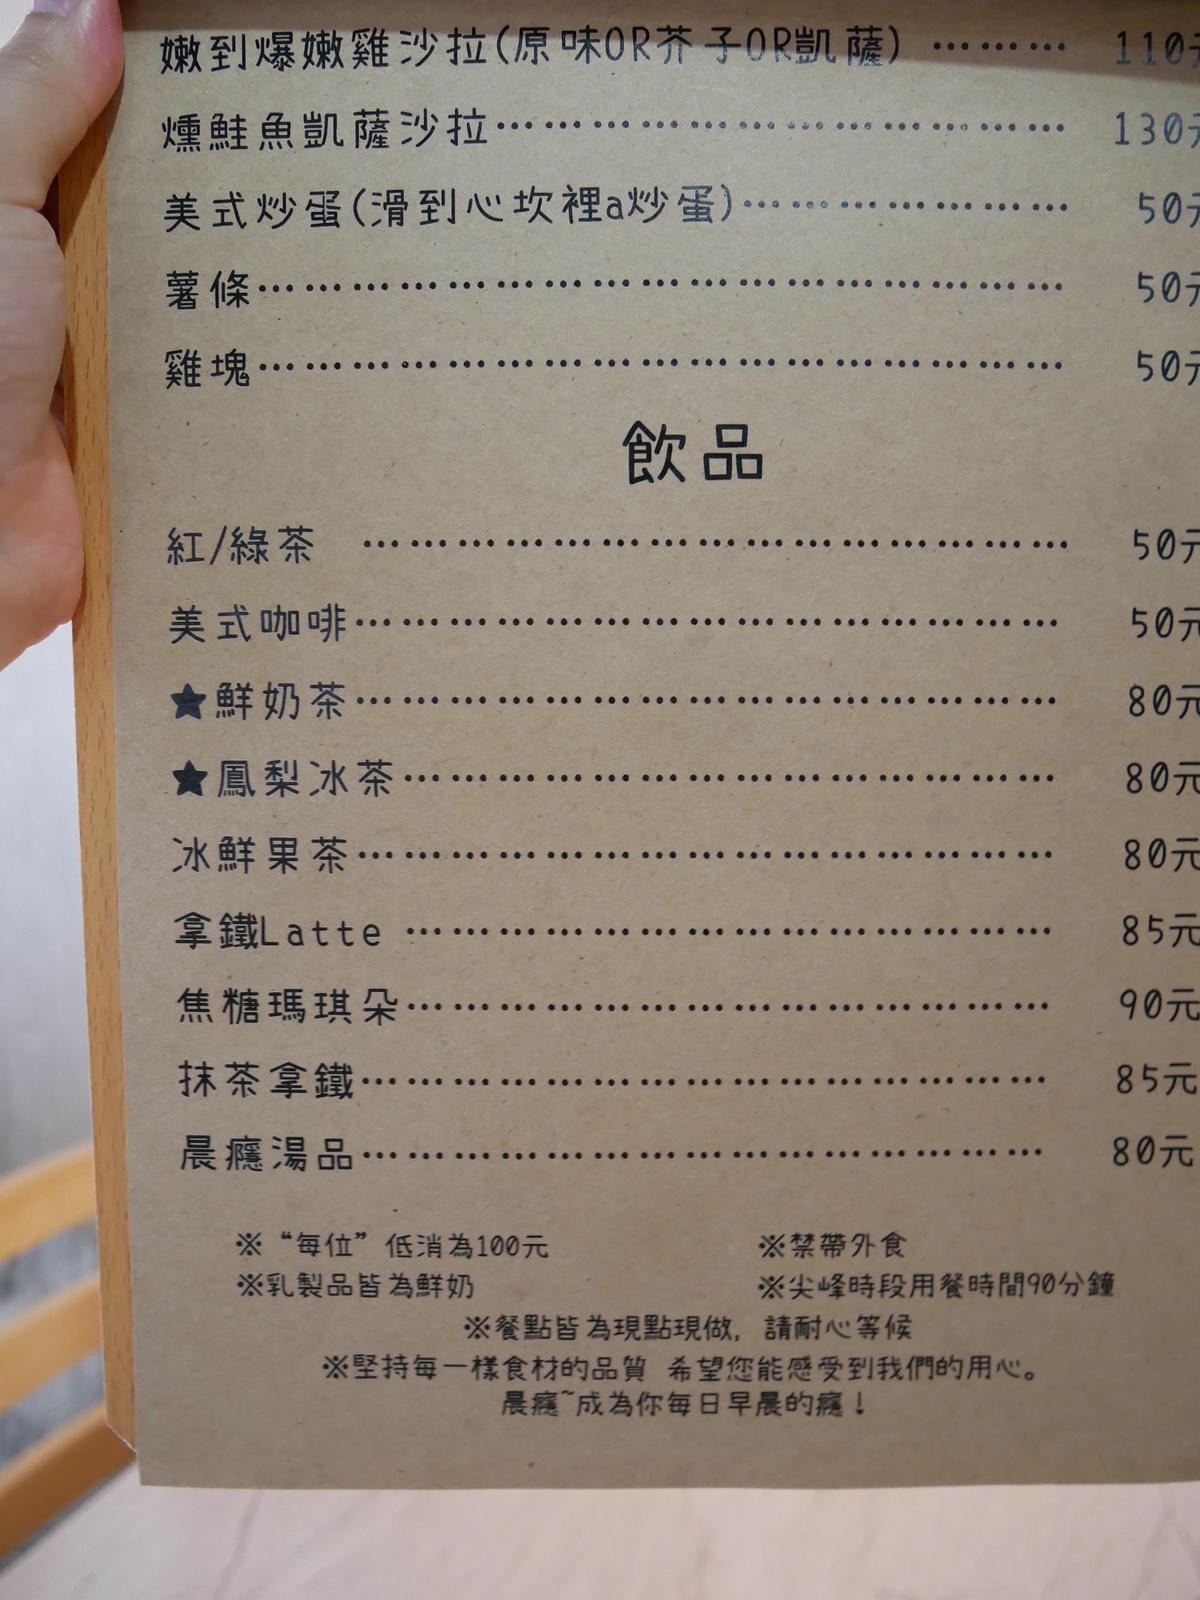 嫩到爆嫩雞沙拉(原味OR芥子OR凱薩) ……… 110元
燻鮭魚凱薩沙拉………………………………… 130元
美式炒蛋(滑到心坎裡a炒蛋)………………… 50元
薯條………………………………………………… 50元
雞塊………………………………………………… 50元
飲品
紅/綠茶 ………………………………………… 50元
美式咖啡………………………………………… 50元
★鮮奶茶………………………………………… 80元
★鳳梨冰茶……………………………………… 80元
冰鮮果茶………………………………………… 80元
拿鐵Latte ……………………………………… 85元
焦糖瑪琪朵……………………………………… 90元
抹茶拿鐵………………………………………… 85元
晨癮湯品………………………………………… 80元
※“每位”低消為100元 ※禁帶外食
※乳製品皆為鮮奶 ※尖峰時段用餐時間90分鐘
※餐點皆為現點現做, 請耐心等候
※堅持每一樣食材的品質 希望您能感受到我們的用心。
晨癮~成為你每日早晨的癮!